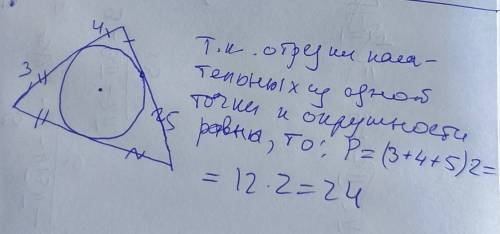 4x
3
5
Т.к. отрезки каса-
тельных из одной
точки к окружности
равны, то: P=(3+4+5)2=
=12·2=24